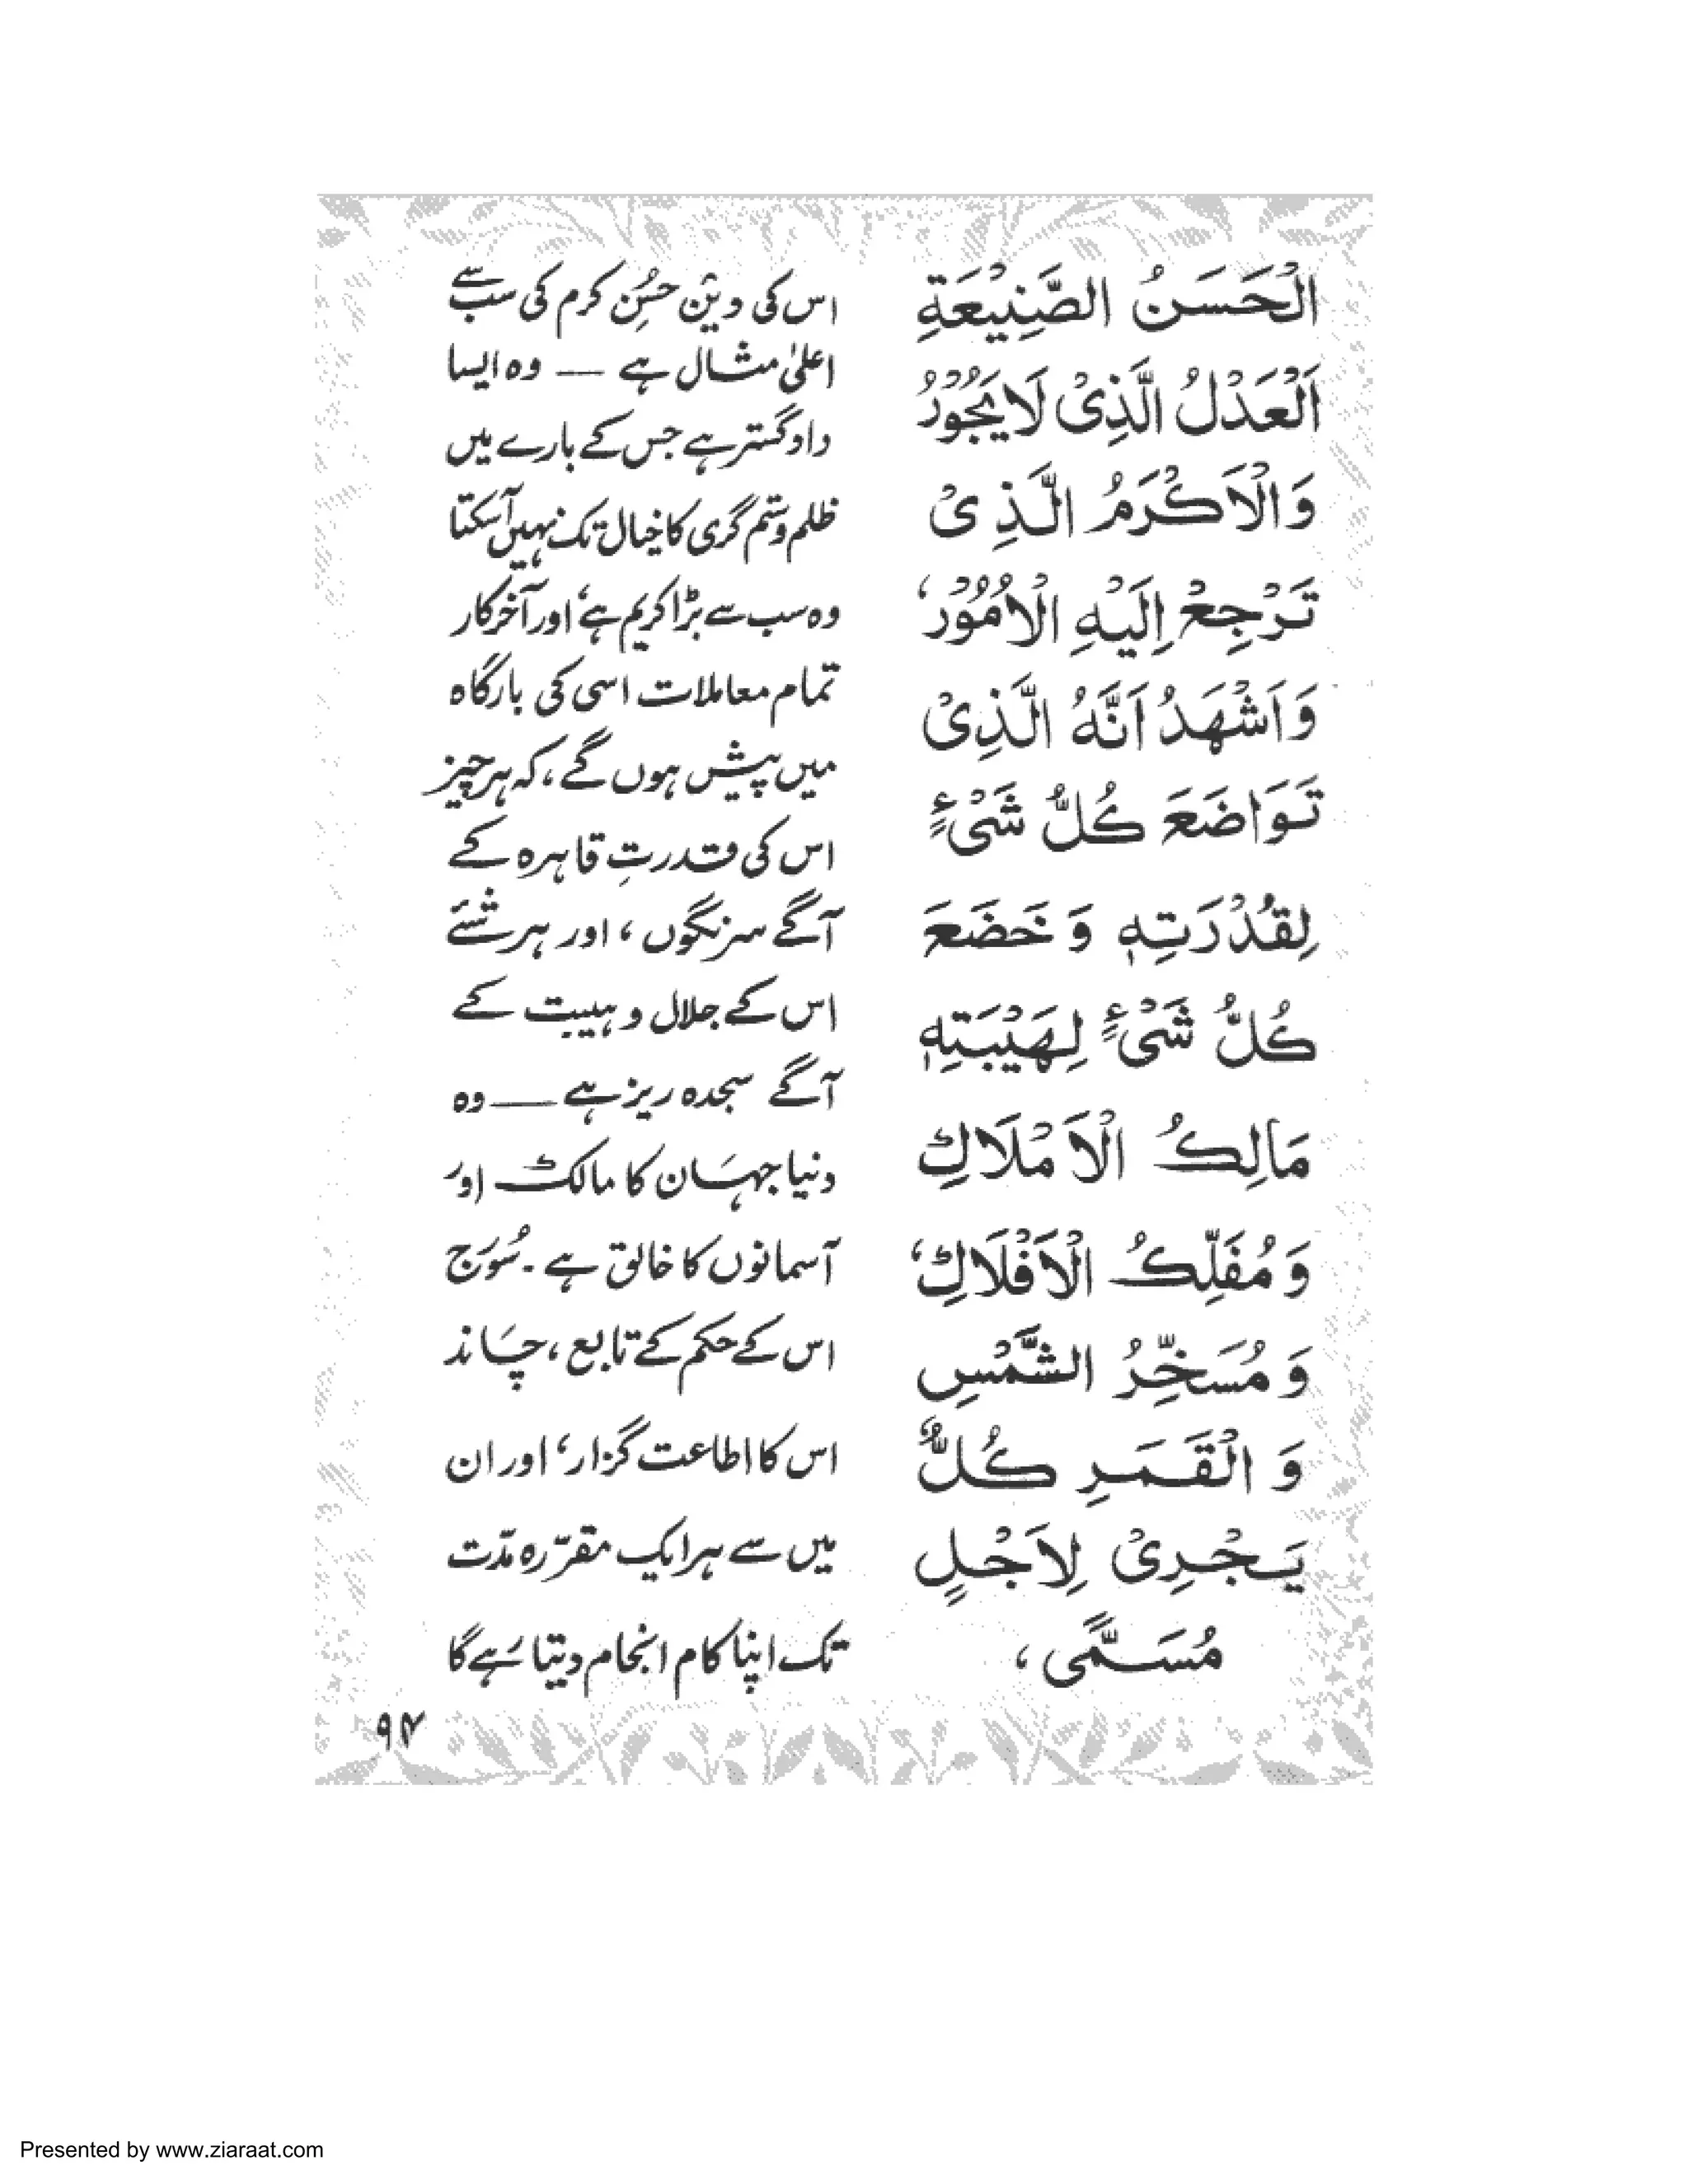 الْحَسَنُ الصَّنِيْعَةِ
اَلْعَدْلُ الَّذِیْ لَا یَجُوْرُ
وَالْاَكْرَمُ الَّذِیْ
تَرْجِعُ اِلَيْهِ الْاُمُوْرُ،
وَاَشْهَدُ اَنَّهُ الَّذِیْ
تَوَاضَعَ كُلُّ شَیْءٍ
لِقُدْرَتِهٖ وَ خَضَعَ
كُلُّ شَیْءٍ لِهَيْبَتِهٖ
مَالِكُ الْاَمْلَاكِ
وَ مُفَلِّكُ الْاَفْلَاكِ،
وَ مُسَخِّرُ الشَّمْسِ
وَ الْقَمَرِ كُلٌّ
يَجْرِیْ لِاَجْلٍ
مُسَمًّی ،
اس کی دین حُسنِ کرم کی سب سے
اعلیٰ مثال ہے — وہ ایسا
دادگستر ہے جس کے بارے میں
ظلم و ستم گری کا خیال تک نہیں آسکتا
وہ سب سے بڑا کریم ہے، اور آخر کار
تمام معاملات اسی کی بارگاہ
میں پیش ہوں گے، کہ ہر چیز
اس کی قدرتِ قاہرہ کے
آگے سرنگوں ، اور ہر شئے
اس کے جلال و ہیبت کے
آگے سجدہ ریز ہے — وہ
دنیا جہان کا مالک اور
آسمانوں کا خالق ہے ۔ سُورج
اس کے حکم کے تابع ، چاند
اس کا اطاعت گزار، اور ان
میں سے ہر ایک مقرّرہ مدّت
تک اپنا کام انجام دیتا رہے گا
۹۴
Presented by www.ziaraat.com